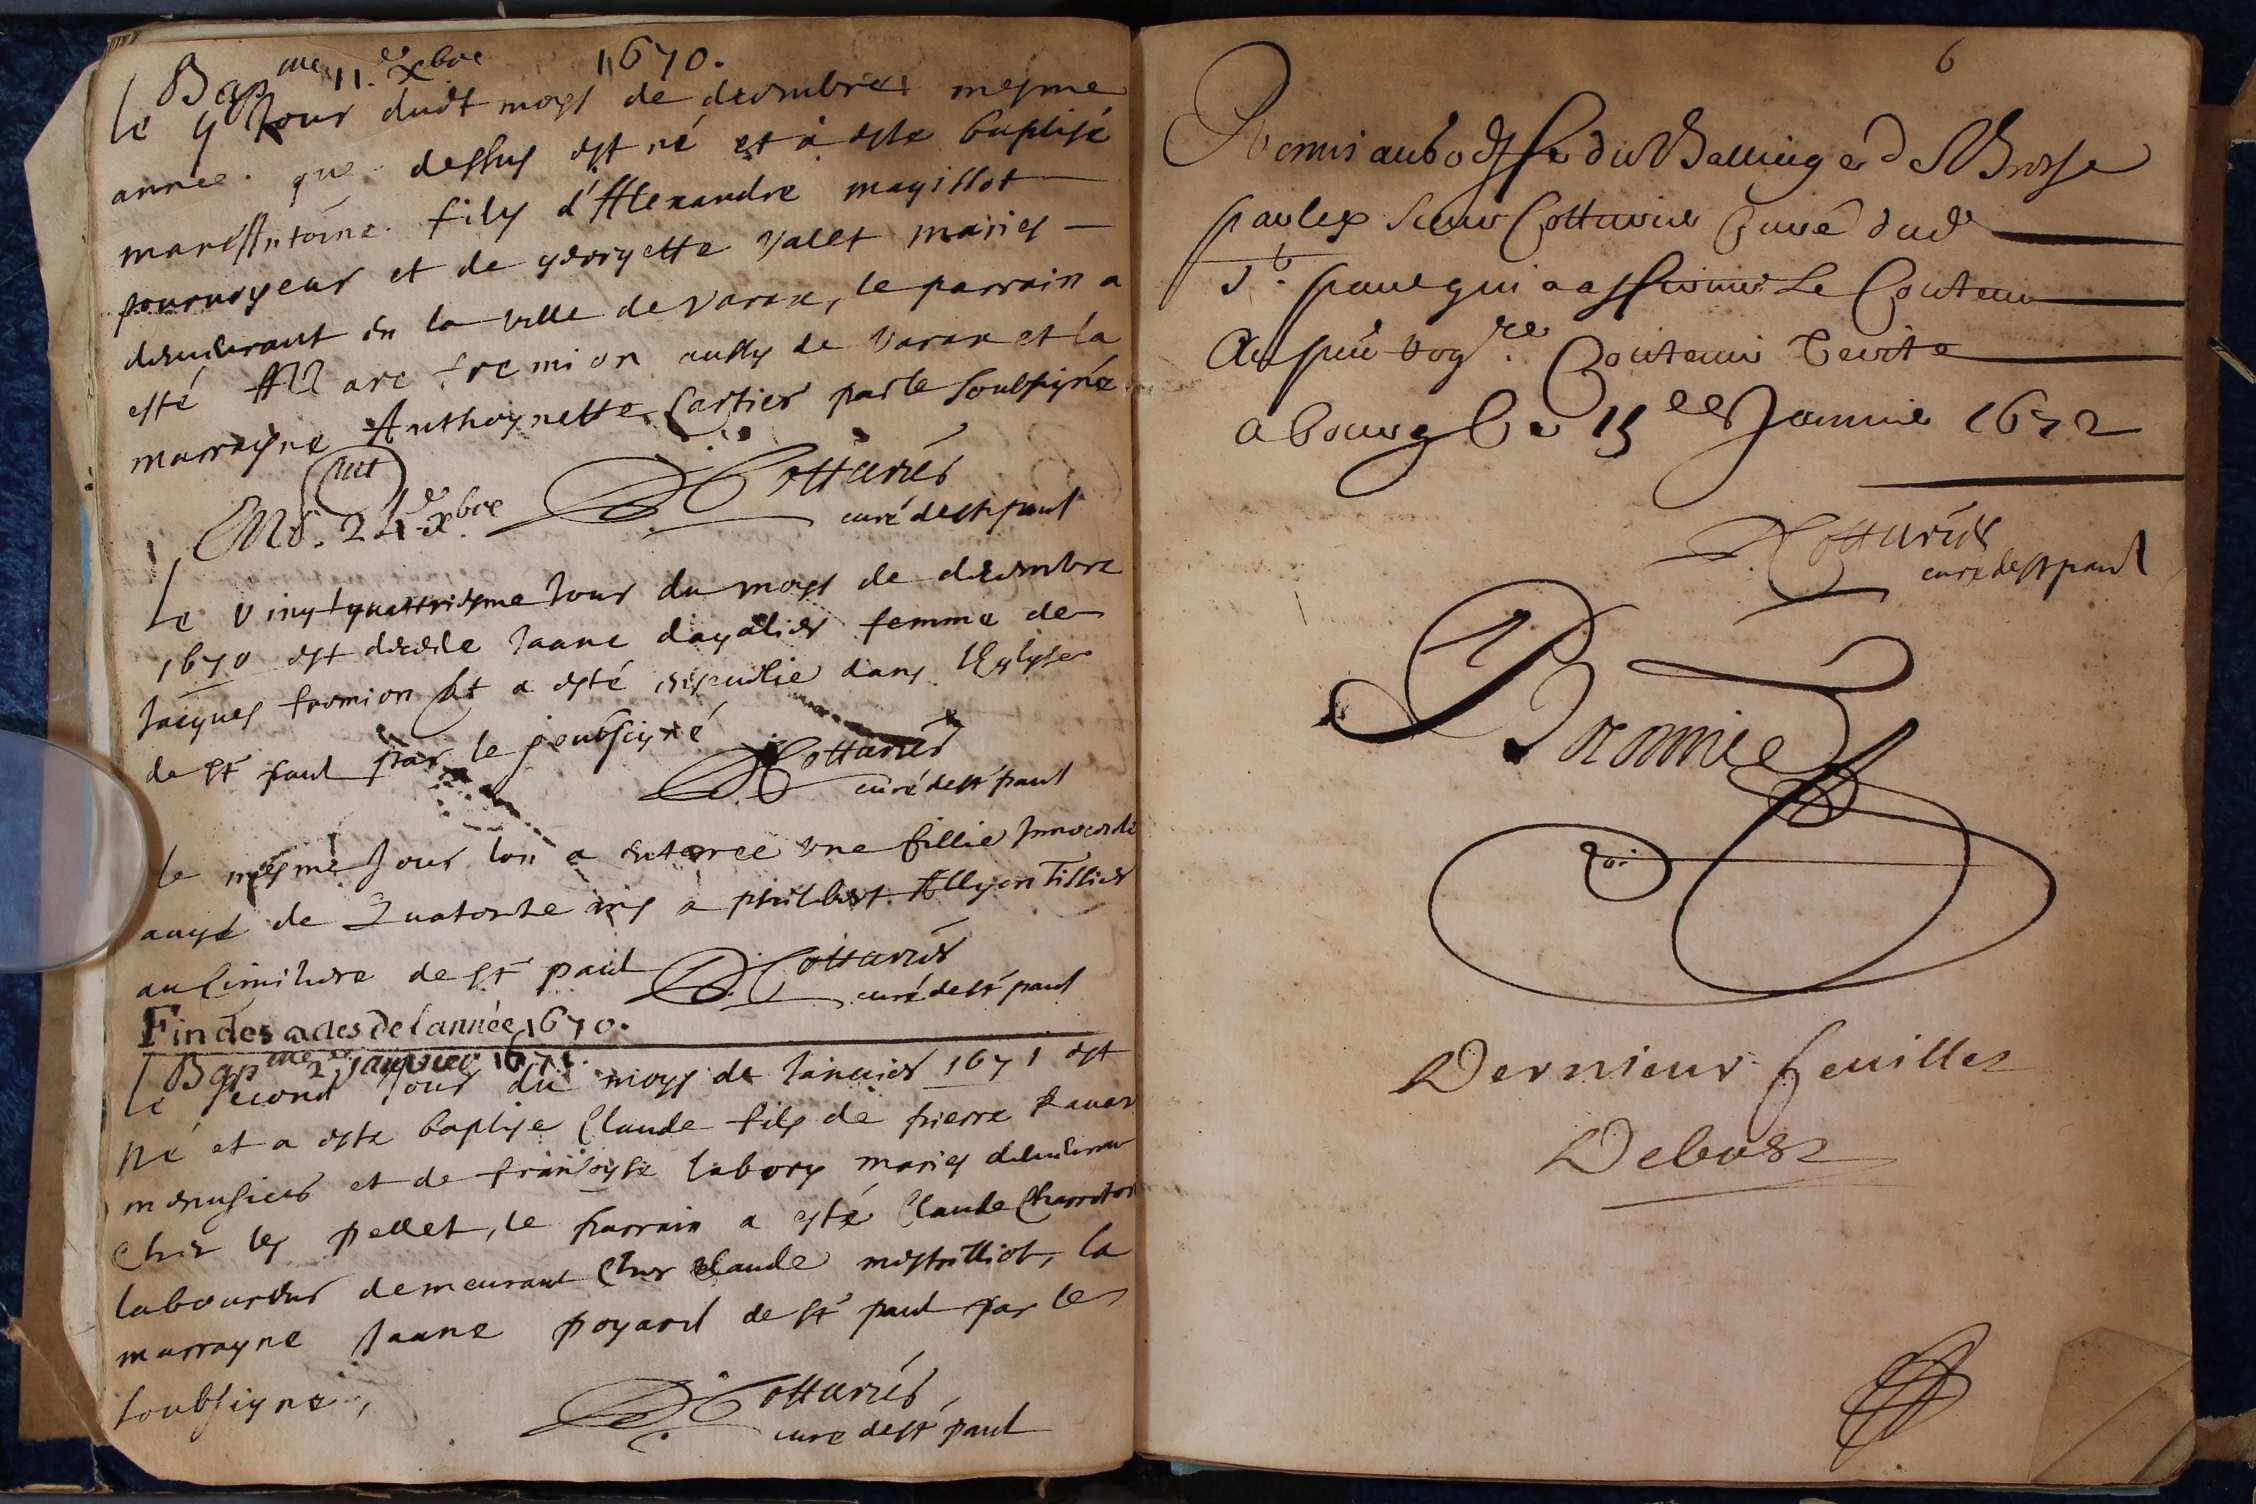 Bap.me 11.e xbre 1670.
Le 11 Jour dudt moys de decembre mesme
annee que dessus est né et à esté baptisé
marc Antoine fils d'Alexandre magillot
pourvoyeur et de georgette vallet mariés
demeurant en la ville de varax, le parrain a
esté Marc fremion aussy de varax et la
marrayne Anthoynette Cartier par le soubsigné
Cottarier
curé de st paul
Mort. 24e xbre
Le vingtquattriesme Jour du moys de decembre
1670 est decede Jeane dagalier femme de
Jacques fremion et a esté ensepvelie dans l'Eglyse
de st paul par le soubsigné
Cottarier
curé de st paul
Le mesme Jour lon a enterree une fillie Innocente
aagé de Quatorze ans a philibert Allyon Tissier
au cimitiere de st paul
Cottarier
curé de st paul
Fin des actes de l'année 1670.
Bap.me 2e janvier 1671.
Le second Jour du moys de Janvier 1671 est
né et a esté baptise Claude fils de pierre
menusier et de françoyse labory mariés demeurant
chez les pellet, le parrain a esté Claude Charreton
laboureur demeurant chez Claude mestrilliot, la
marrayne Jeane poyard de st paul par le
soubsigné,
Cottarier
curé de st paul
6
Remis au Greffe du Balliage de Bresse
par le sieur Cottarier Curé dud.
St. paul qui a affirmé le Contenu
au present registre Contenir verité
a bourg le 15e Janvier 1672
Cottarier
curé de st paul
Dernieur feuillet